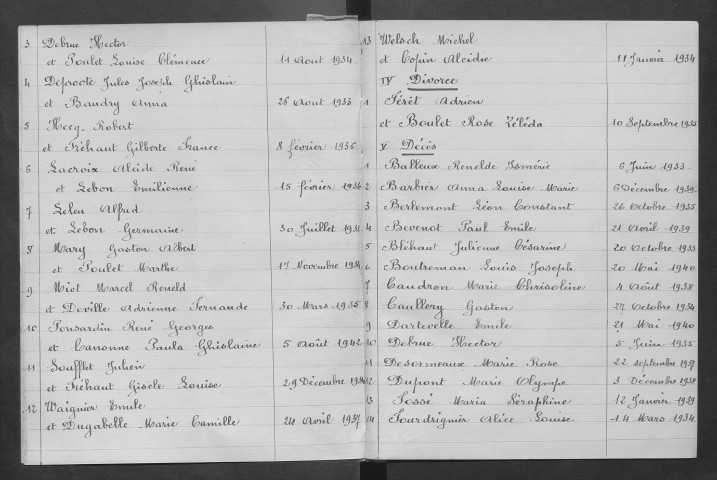 3 Debrue Hector
et Poulet Louise Clémence 11 Aout 1934
4 Deproote Jules Joseph Ghislain
et Baudry Anna 26 Aout 1933
5 Hecq Robert
et Fréhaut Gilberte France 8 février 1936
6 Lacroix Alcide René
et Lebon Emilienne 15 février 1936
7 Leleu Alfred
et Lebon Germaine 30 Juillet 1931
8 Mary Gaston Albert
et Poulet Marthe 17 Novembre 1934
9 Miot Marcel Reneld
et Deville Adrienne Fernande 30 Mars 1935
10 Ponsardin René Georges
et Canonne Paula Ghislaine 5 Août 1942
11 Soufflet Julien
et Fréhaut Gisele Louise 29 Décembre 1934
12 Waignier Emile
et Dugabelle Marie Camille 24 Avril 1937
13 Welsch Michel
et Copin Alcidie 11 Janvier 1934
IV Divorce
1 Férét Adrien
et Boulet Rose Zéléda 10 Septembre 1935
V Décès
1 Balleux Renelde Ismérie 6 Juin 1933
2 Barbier Anna Louise Marie 6 Décembre 1939
3 Berlemont Léon Constant 26 Octobre 1935
4 Bevenot Paul Emile 21 Avril 1939
5 Bléhaut Julienne Césarine 20 Octobre 1933
6 Boutreman Louis Joseph 20 Mai 1940
7 Caudron Marie Chrisoline 4 Août 1938
8 Caullery Gaston 27 Octobre 1934
9 Dartevelle Emile 21 Mai 1940
10 Debrue Hector 5 Juin 1935
11 Desormeaux Marie Rose 22 septembre 1937
12 Dupont Marie Olympe 3 Décembre 1938
13 Fossé Maria Séraphine 12 Janvier 1939
14 Fourdrignier Alice Louise 14 Mars 1934